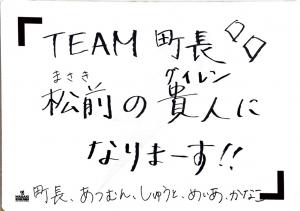 TEAM 町長
まさき グイレン
松前の貴人に
なりまーす!!
町長、あつむん、しゅうと、めいあ、かなこ